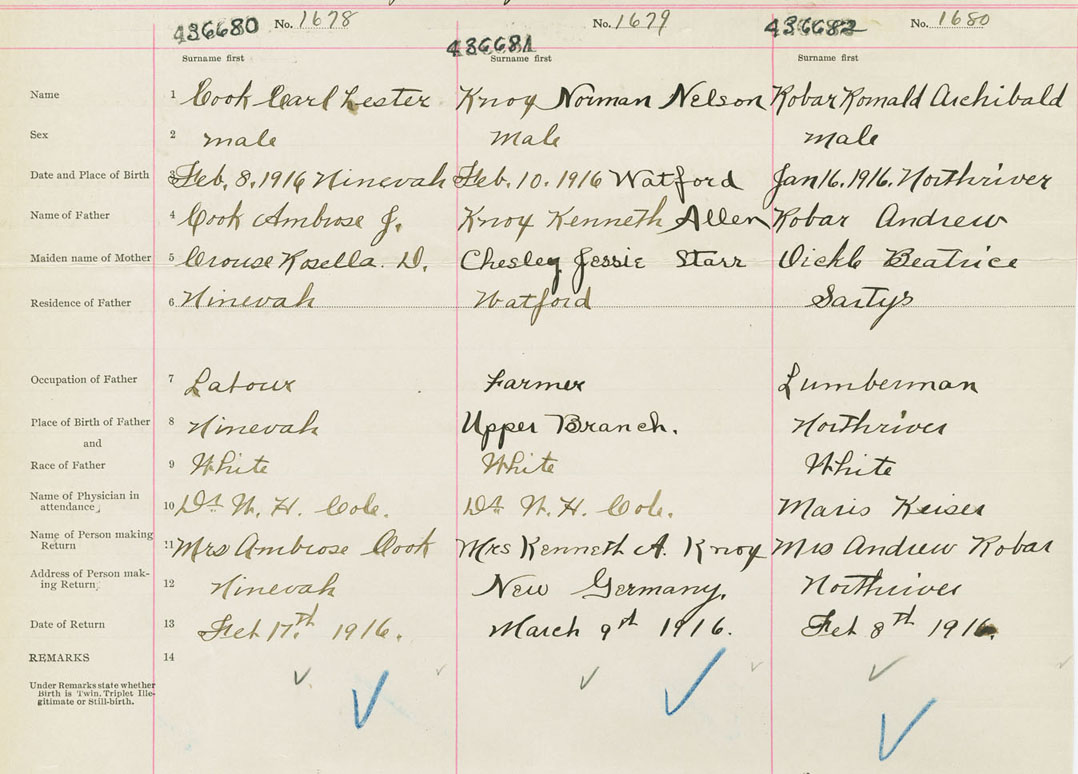 436680 No. 1678
436681 No. 1679
436682 No. 1680
Surname first Surname first Surname first
Name 1 Cook Carl Lester Knox Norman Nelson Robar Romald Archibald
Sex 2 male Male male
Date and Place of Birth 3 Feb. 8. 1916 Ninevah Feb. 10. 1916 Watford Jan 16. 1916. Northriver
Name of Father 4 Cook Ambrose J. Knox Kenneth Allen Robar Andrew
Maiden name of Mother 5 Crouse Rosella. D. Chesley Jessie Starr Beatrice
Residence of Father 6 Ninevah Watford Sartys
Occupation of Father 7 Labour Farmer Lumberman
Place of Birth of Father 8 Ninevah Upper Branch. Northriver
and
Race of Father 9 White White White
Name of Physician in
attendance 10 Dr. W. H. Cole. Dr. W. H. Cole. Maris Keiser
Name of Person making
Return 11 Mrs Ambrose Cook Mrs Kenneth A. Knox Mrs Andrew Robar
Address of Person mak-
ing Return 12 Ninevah New Germany. Northriver
Date of Return 13 Feb 17th 1916. March 9th 1916. Feb 8th 1916.
REMARKS 14
Under Remarks state whether
Birth is Twin, Triplet Ille-
gitimate or Still-birth.